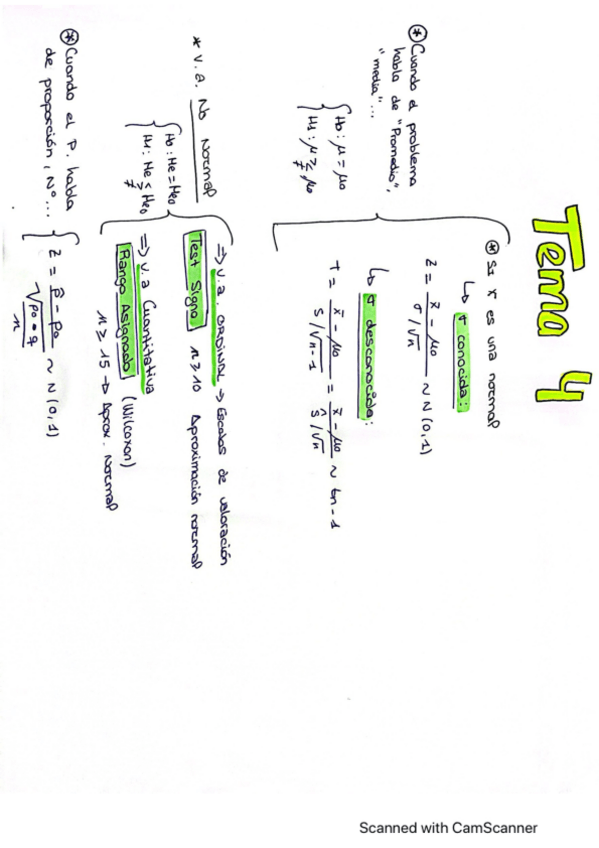 Tema 4
⊛ Cuando el problema
habla de "Promedio",
"media"...
H₀: μ = μ₀
H₁: μ ≷≠ μ₀
⊛ Si x es una normal
↳ σ conocida:
Z = x̄ - μ₀ / σ/√n ~ N(0,1)
↳ σ desconocida:
T = x̄ - μ₀ / S/√n-1 = x̄ - μ₀ / Ŝ/√n ~ tn-1
* v.a. No Normal
H₀: Me = Me₀
H₁: Me ≶≠ Me₀
⇒ v.a. ORDINAL → Escalas de valoración
Test Signo n ≥ 10 Aproximación normal
⇒ v.a Cuantitativa
Rango Asignado (Wilcoxon)
n ≥ 15 → Aprox. Normal
⊛ Cuando el P. habla
de proporción, Nº...
Z = p̂ - p₀ / √p₀·q/n ~ N(0,1)
Scanned with CamScanner